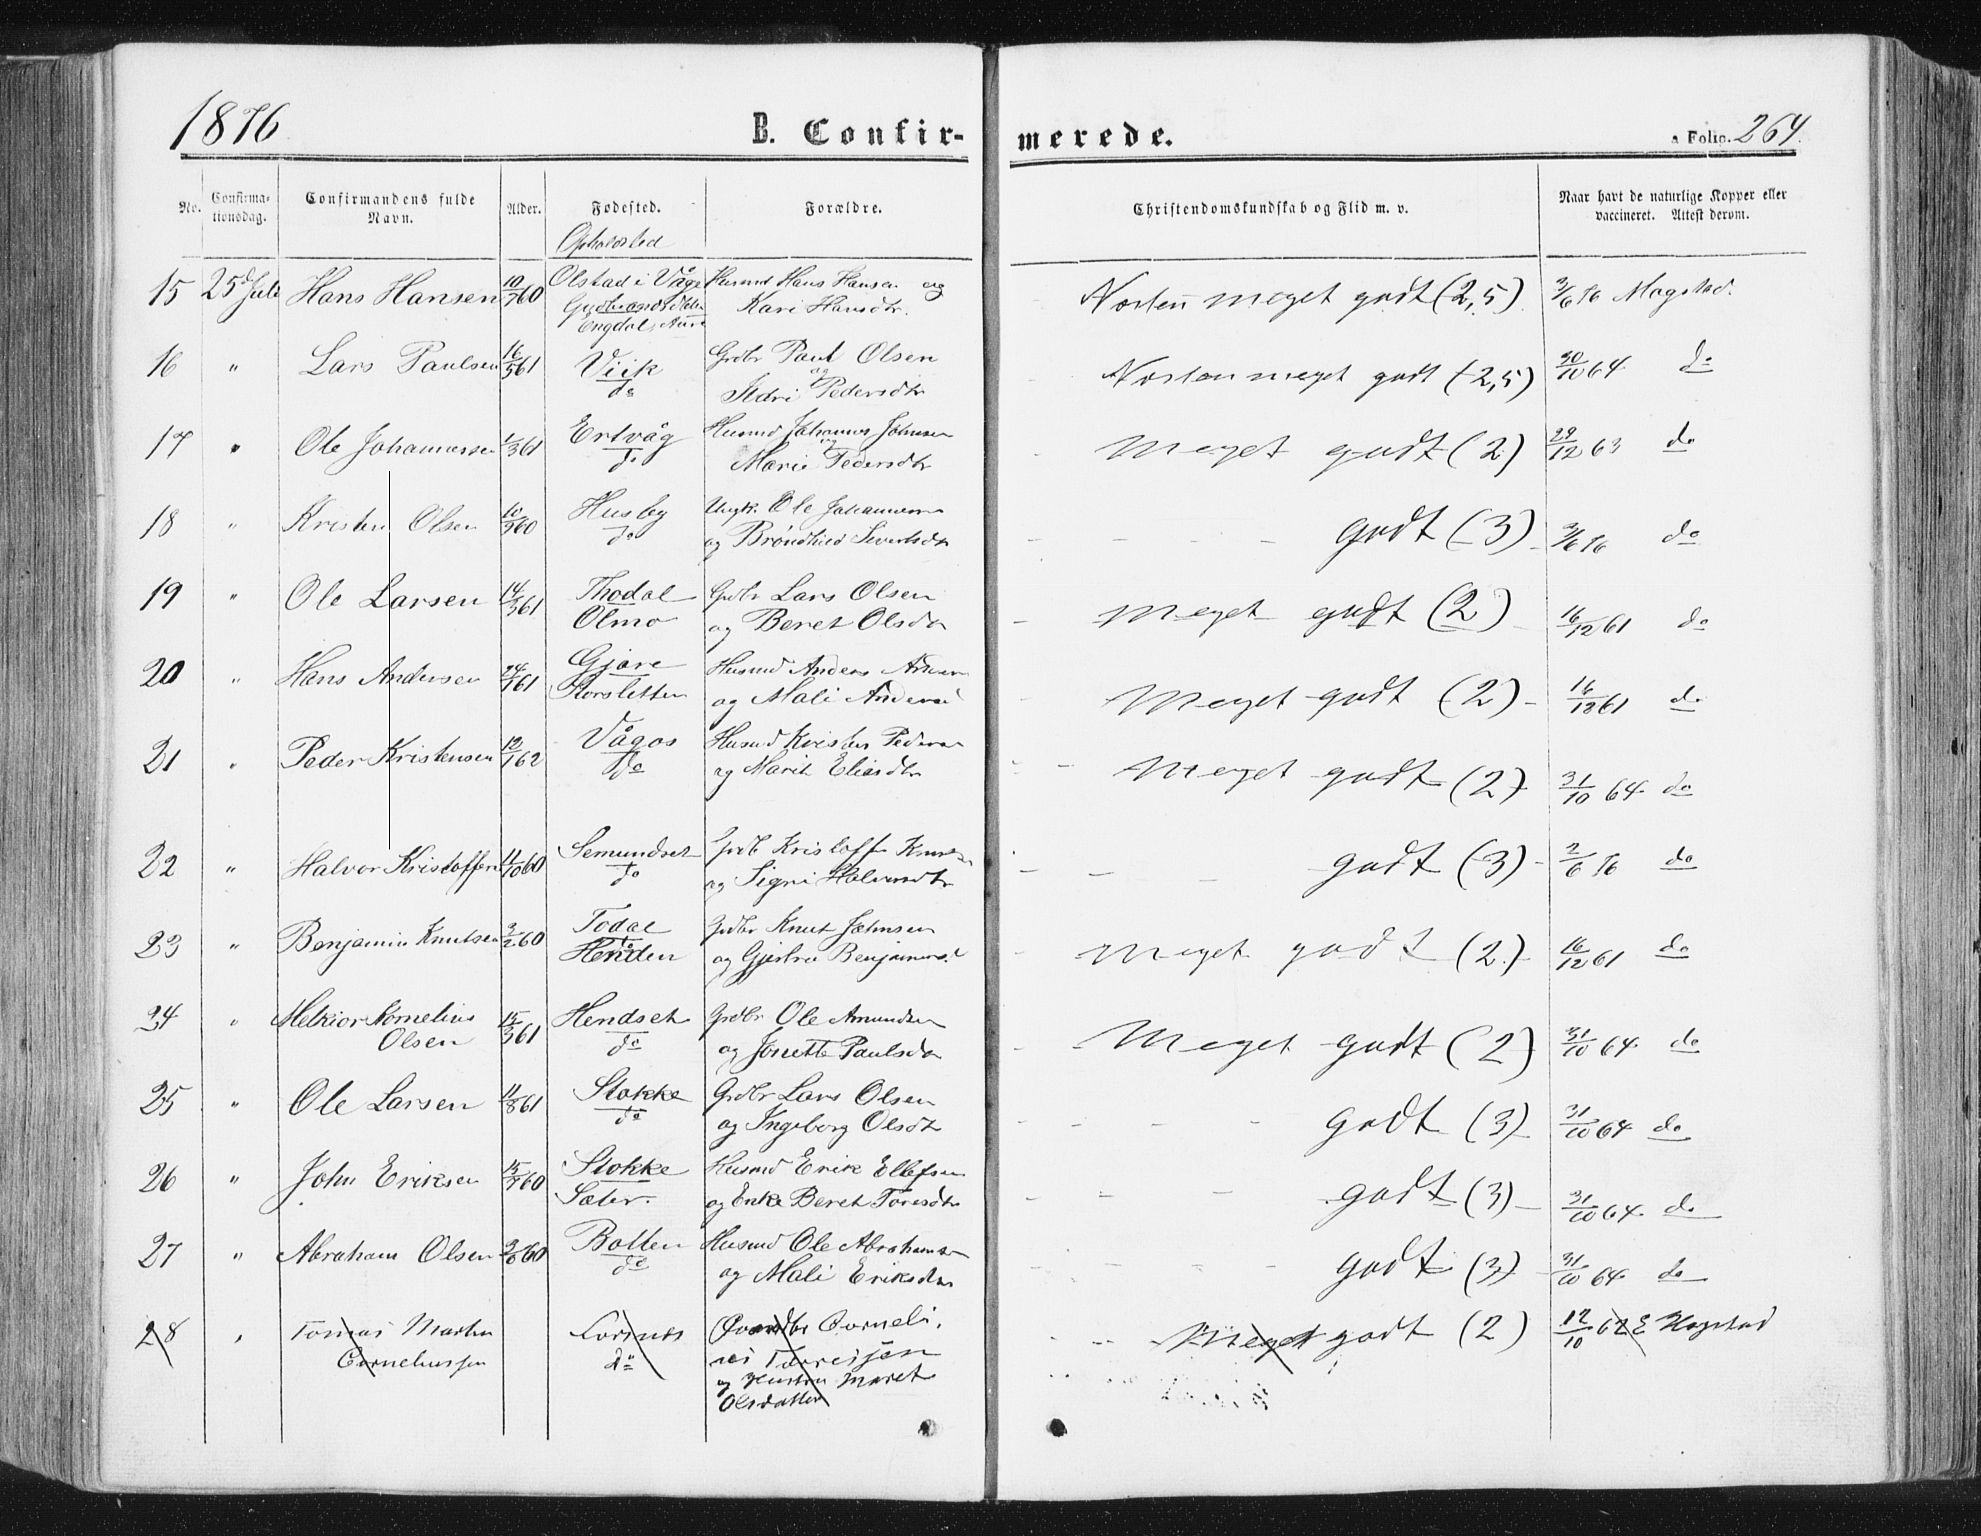 1876
B. Confir-
merede.
Folio. 264.
No.
Confirma-
tionsdag.
Confirmandens fulde
Navn.
Alder.
Fødested.
Opholdsted
Forældre.
Christendomskundskab og Flid m. v.
Naar havt de naturlige Kopper eller
vaccineret. Attest derom.
15 25d Juli Hans Hansen 10/7 60 Olstad i Våge Husmd Hans Hansen og
Engdal, Aure Kari Hansdtr. Næsten meget godt (2,5) 3/6 76 Magstad.
16 " Lars Paulsen 16/5 61 Viik Grdbr Paul Olsen
do og Pedersdtr Næsten meget godt (2,5) 30/10 64 do
17 " Ole Johannessen 1/3 61 Ertvåg Husmd Johannes Johnsen
do og Marie Pedersdtr Meget godt (2) 29/12 63 do
18 " Kristen Olsen 10/9 60 Husby Ungk. Ole Johannessen
do og Brønthild Sivertsdtr godt (3) 3/6 76 do
19 " Ole Larsen 14/3 61 Thodal Grdbr Lars Olsen
Olmo og Beret Olsdtr meget godt (2) 16/12 61 do
20 " Hans Andersen 24/1 61 Gjøre Husmd Anders
Korsletten og Mali Andersd Meget godt (2) 16/12 61 do
21 " Peder Kristensen 12/1 62 Vågos Husmd Kristen Pedersen
do og Marit Eliasdtr Meget godt (2) 31/10 64 do
22 " Halvor Kristoffersen 11/10 60 Semundset Grdb Kristoffer Knutsen
do og Signi Halvorsdtr godt (3) 2/6 76 do
23 " Benjamin Knutsen 3/2 60 Todal Grdbr Knut Johnsen
Henden og Gjertru Benjaminsd. meget godt (2) 16/12 61 do
24 " Melkior Kornelius
Olsen 15/3 61 Hendset Grdbr Ole Amundsen
do og Jonette Paulsdtr Meget godt (2) 31/10 64 do
25 " Ole Larsen 11/8 61 Stokke Grdbr Lars Olsen
do og Ingeborg Olsdtr godt (3) 31/10 64 do
26 " John Eriksen 15/9 60 Stokke Husmd Erik Ellefsen
Sæter. og Enke Beret Toresdtr godt (3) 31/10 64 do
27 " Abraham Olsen 9/8 60 Botten Husmd Ole Abrahamsen
do og Mali Eriksdtr godt (3) 31/10 64 do
28 " Tomas Martin
Corneliussen do Corneli-
us Torresjøn
og Hustru Maret
Olsdatter Meget godt (2) 12/10 62 E Hagstad